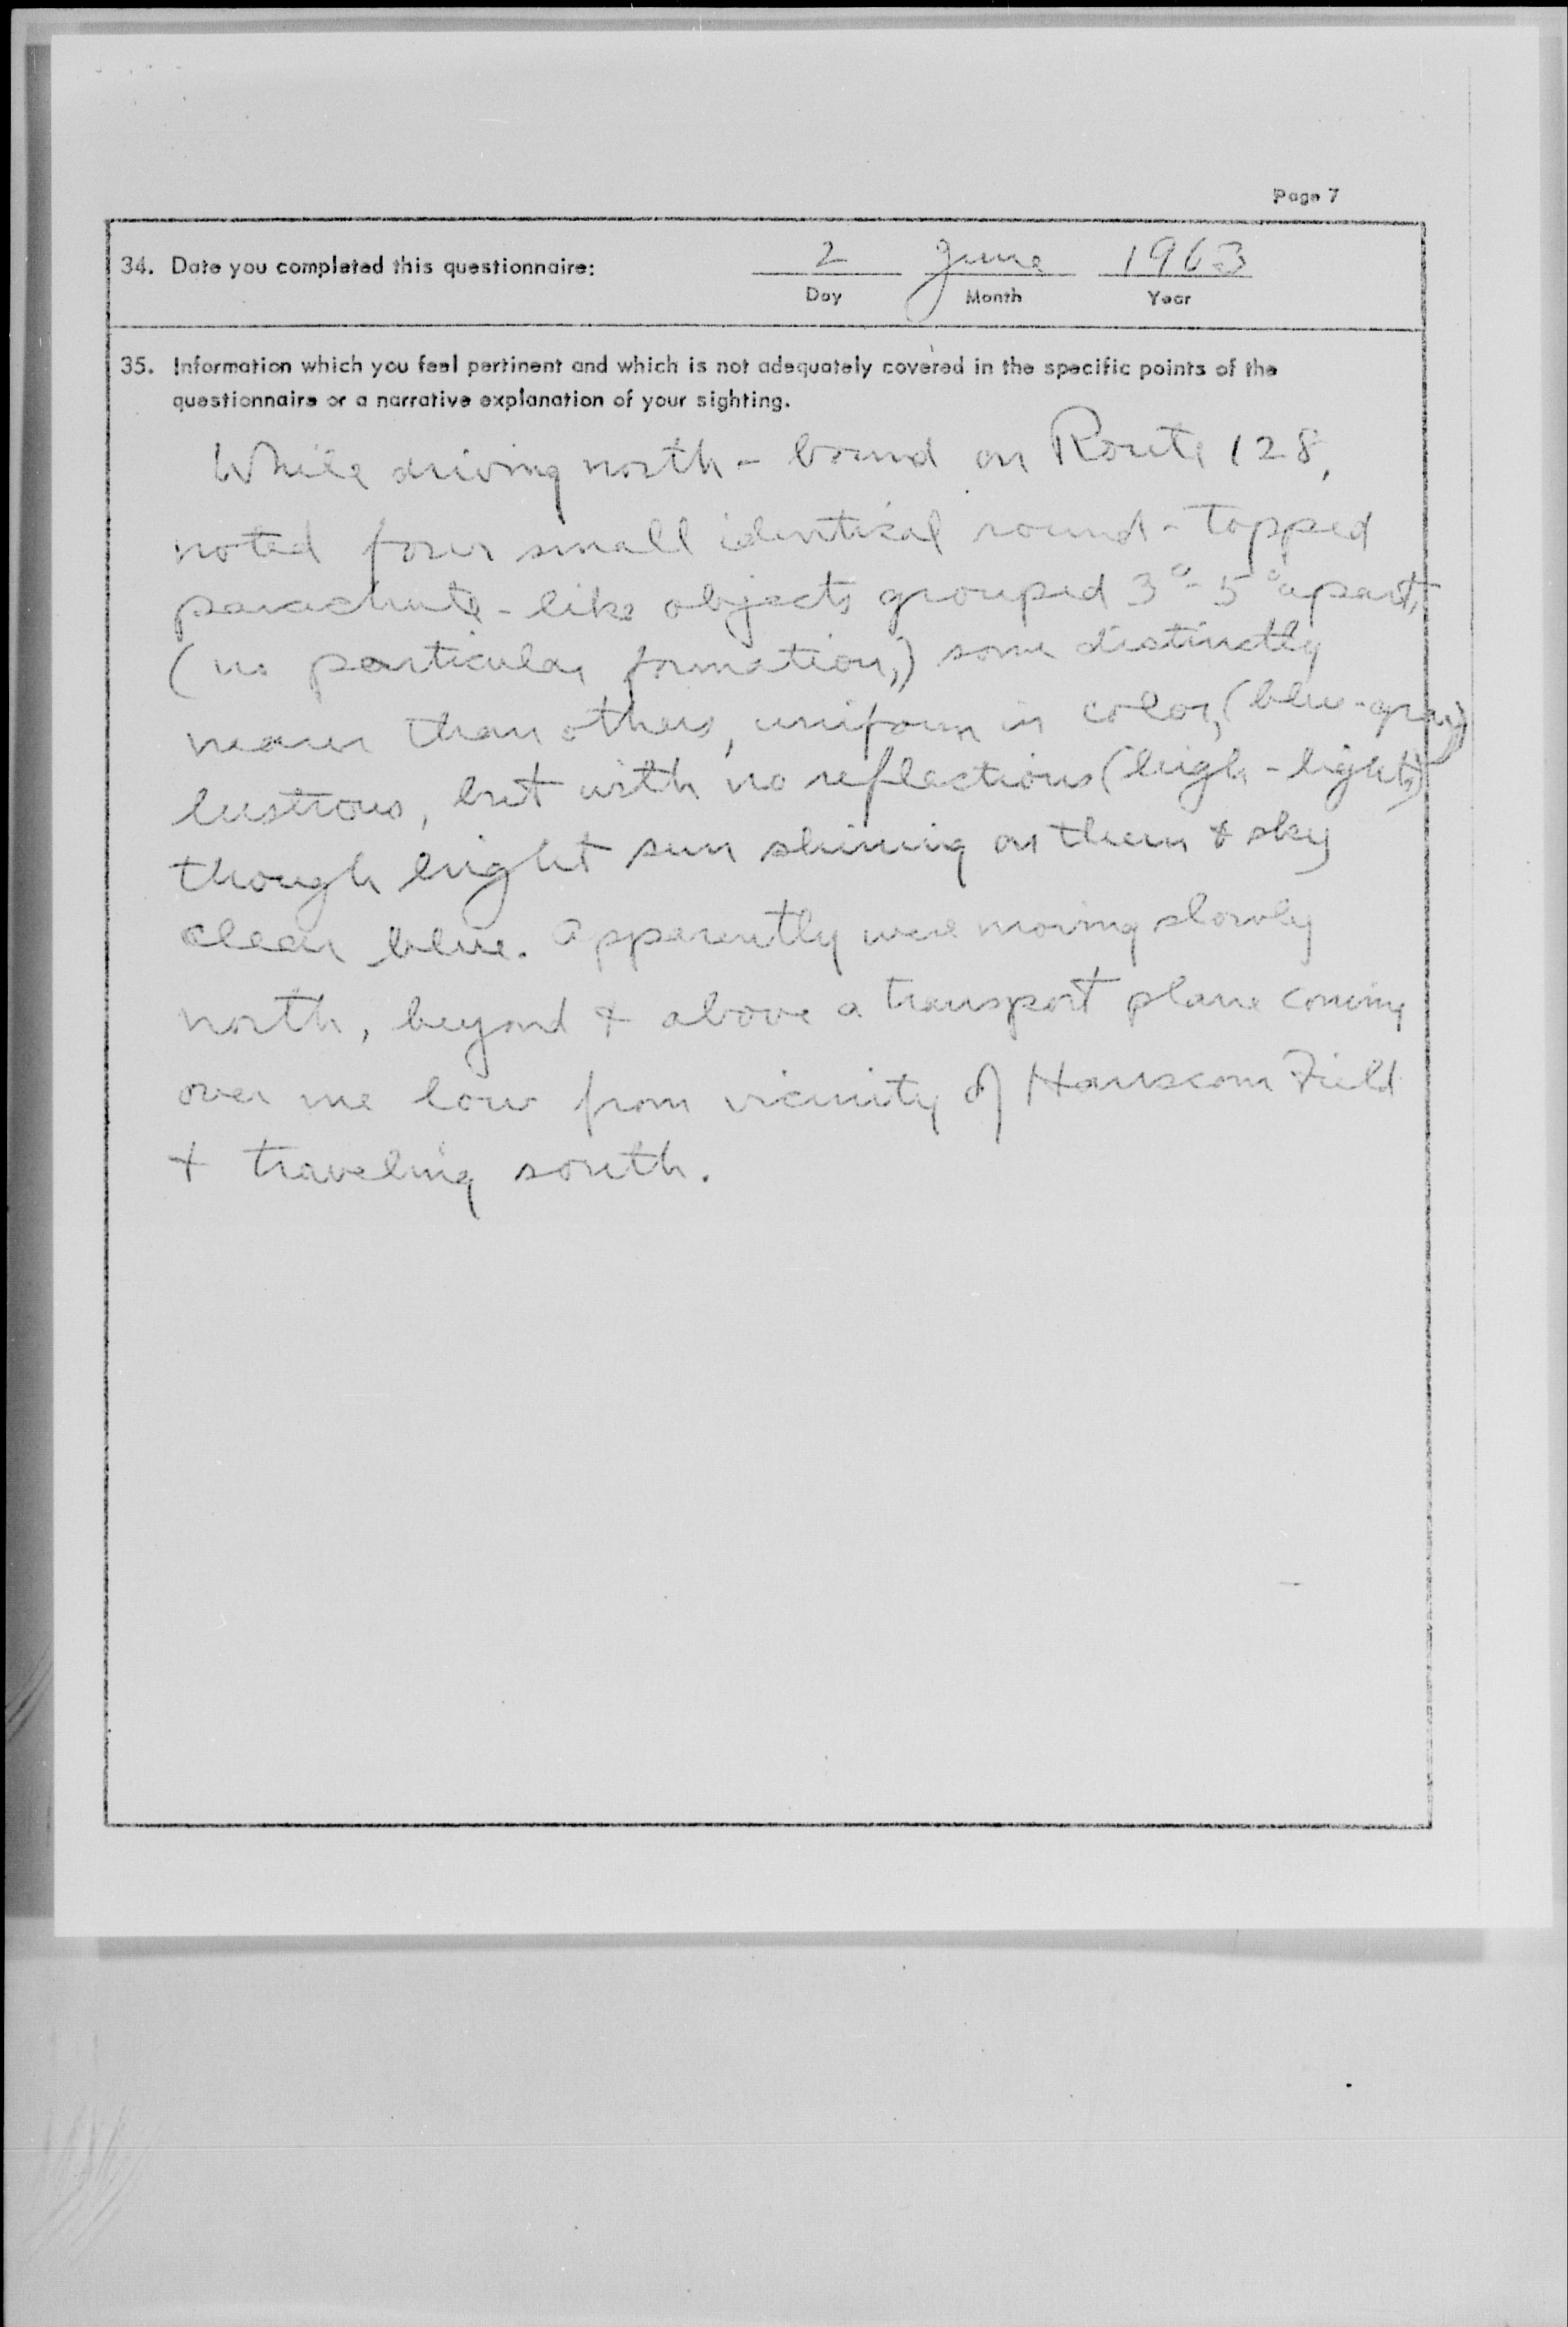 Page 7
34. Date you completed this questionnaire: 2 June 1963
Day Month Year
35. Information which you feel pertinent and which is not adequately covered in the specific points of the
questionnaire or a narrative explanation of your sighting.
While driving north-bound on Route 128,
noted four small identical round-topped
parachute-like objects grouped 3°-5° apart,
(no particular formation,) some distinctly
nearer than others, uniform in color, (blue-gray)
lustrous, but with no reflections (high-lights)
though bright sun shining on them & sky
clear blue. Apparently were moving slowly
north, beyond & above a transport plane coming
over me low from vicinity of Hanscom Field
& traveling south.